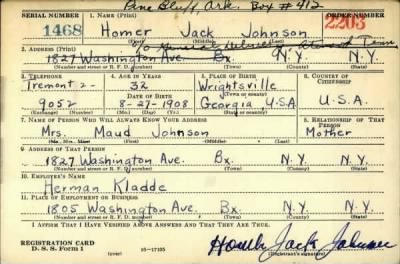 Pine Bluff Ark. Box #412
SERIAL NUMBER 1. NAME (Print) ORDER NUMBER
1468 Homer Jack Johnson 2203
2. ADDRESS (Print)
1827 Washington Ave. Bx. N.Y. N.Y.
(Number and street or R. F. D. number) (Town) (County) (State)
3. TELEPHONE 4. AGE IN YEARS 5. PLACE OF BIRTH 6. COUNTRY OF CITIZENSHIP
Tremont 2- 32 Wrightsville
DATE OF BIRTH (Town or county)
9052 8-27-1908 Georgia U.S.A U.S.A.
(Exchange) (Number) (Mo.) (Day) (Yr.) (State or country)
7. NAME OF PERSON WHO WILL ALWAYS KNOW YOUR ADDRESS 8. RELATIONSHIP OF THAT PERSON
Mrs. Maud Johnson Mother
(Mr., Mrs., Miss) (First) (Middle) (Last)
9. ADDRESS OF THAT PERSON
1827 Washington Ave. Bx. N.Y. N.Y.
(Number and street or R. F. D. number) (Town) (County) (State)
10. EMPLOYER'S NAME
Herman Kladde
11. PLACE OF EMPLOYMENT OR BUSINESS
1805 Washington Ave. Bx. N.Y. N.Y.
(Number and street or R. F. D. number) (Town) (County) (State)
I AFFIRM THAT I HAVE VERIFIED ABOVE ANSWERS AND THAT THEY ARE TRUE.
REGISTRATION CARD
D. S. S. Form 1 (over) 16-17105 Homer Jack Johnson
(Registrant's signature)